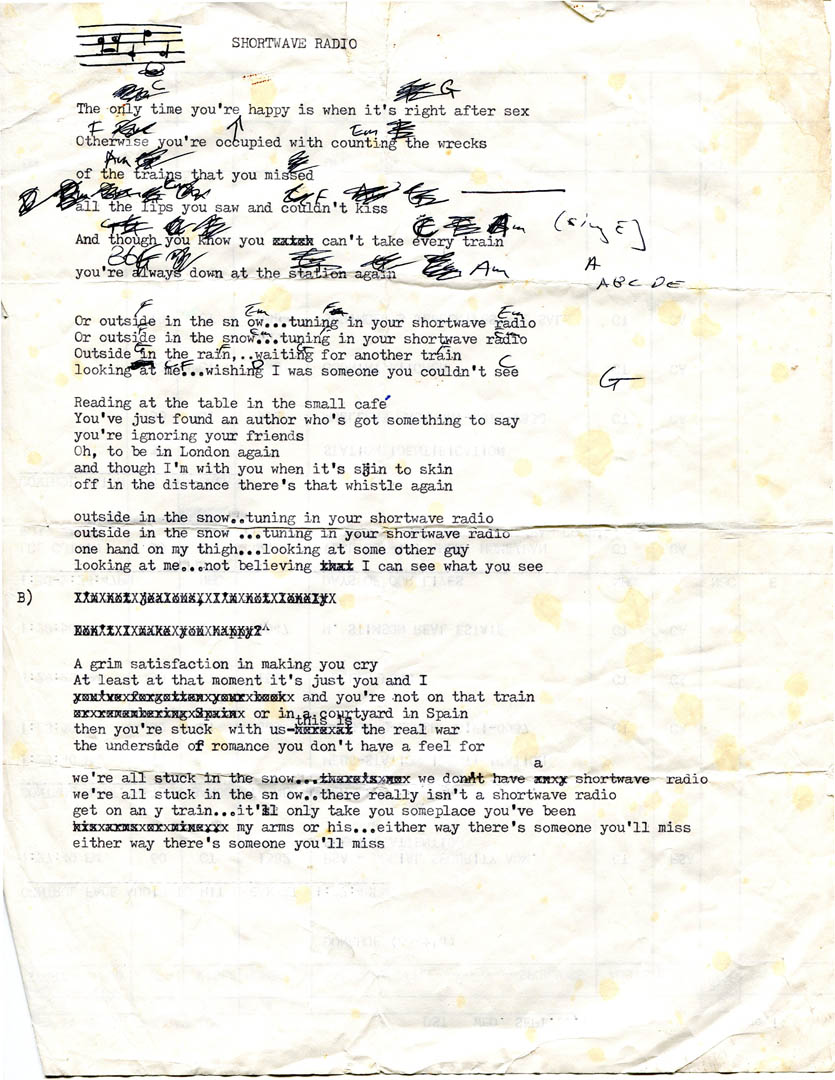 SHORTWAVE RADIO
C G
The only time you're happy is when it's right after sex
F Em
Otherwise you're occupied with counting the wrecks
Am
of the trains that you missed
all the lips you saw and couldn't kiss
Am (sing E]
And though you know you can't take every train
A
Am
A B C D E
you're always down at the station again
F Em Em
Or outside in the sn ow...tuning in your shortwave radio
Or outside in the snow...tuning in your shortwave radio
Outside in the rain,..waiting for another train
C
looking at me...wishing I was someone you couldn't see
G
Reading at the table in the small café
You've just found an author who's got something to say
you're ignoring your friends
Oh, to be in London again
and though I'm with you when it's skin to skin
off in the distance there's that whistle again
outside in the snow..tuning in your shortwave radio
outside in the snow ...tuning in your shortwave radio
one hand on my thigh...looking at some other guy
looking at me...not believing that I can see what you see
B) I'm not jealous, I'm not lonely
Don't I make you happy?
A grim satisfaction in making you cry
At least at that moment it's just you and I
you've forgotten your book and you're not on that train
or remembering Spain or in a courtyard in Spain
this is
then you're stuck with us- the real war
the underside of romance you don't have a feel for
a
we're all stuck in the snow... we don't have shortwave radio
we're all stuck in the sn ow..there really isn't a shortwave radio
get on an y train...it'll only take you someplace you've been
my arms or his...either way there's someone you'll miss
either way there's someone you'll miss